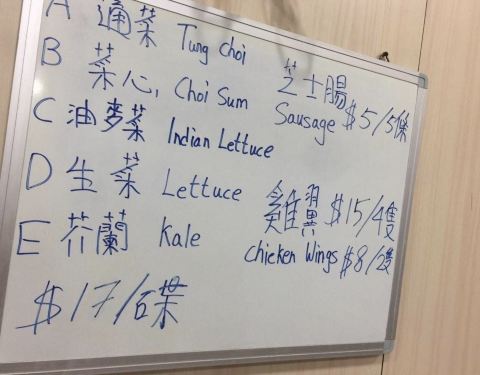 A 通菜 Tung Choi
B 菜心, Choi Sum
C 油麥菜 Indian Lettuce
D 生菜 Lettuce
E 芥蘭 Kale
$17/碟
芝士腸
Sausage $5/5條
雞翼 $15/4隻
chicken Wings $8/2隻